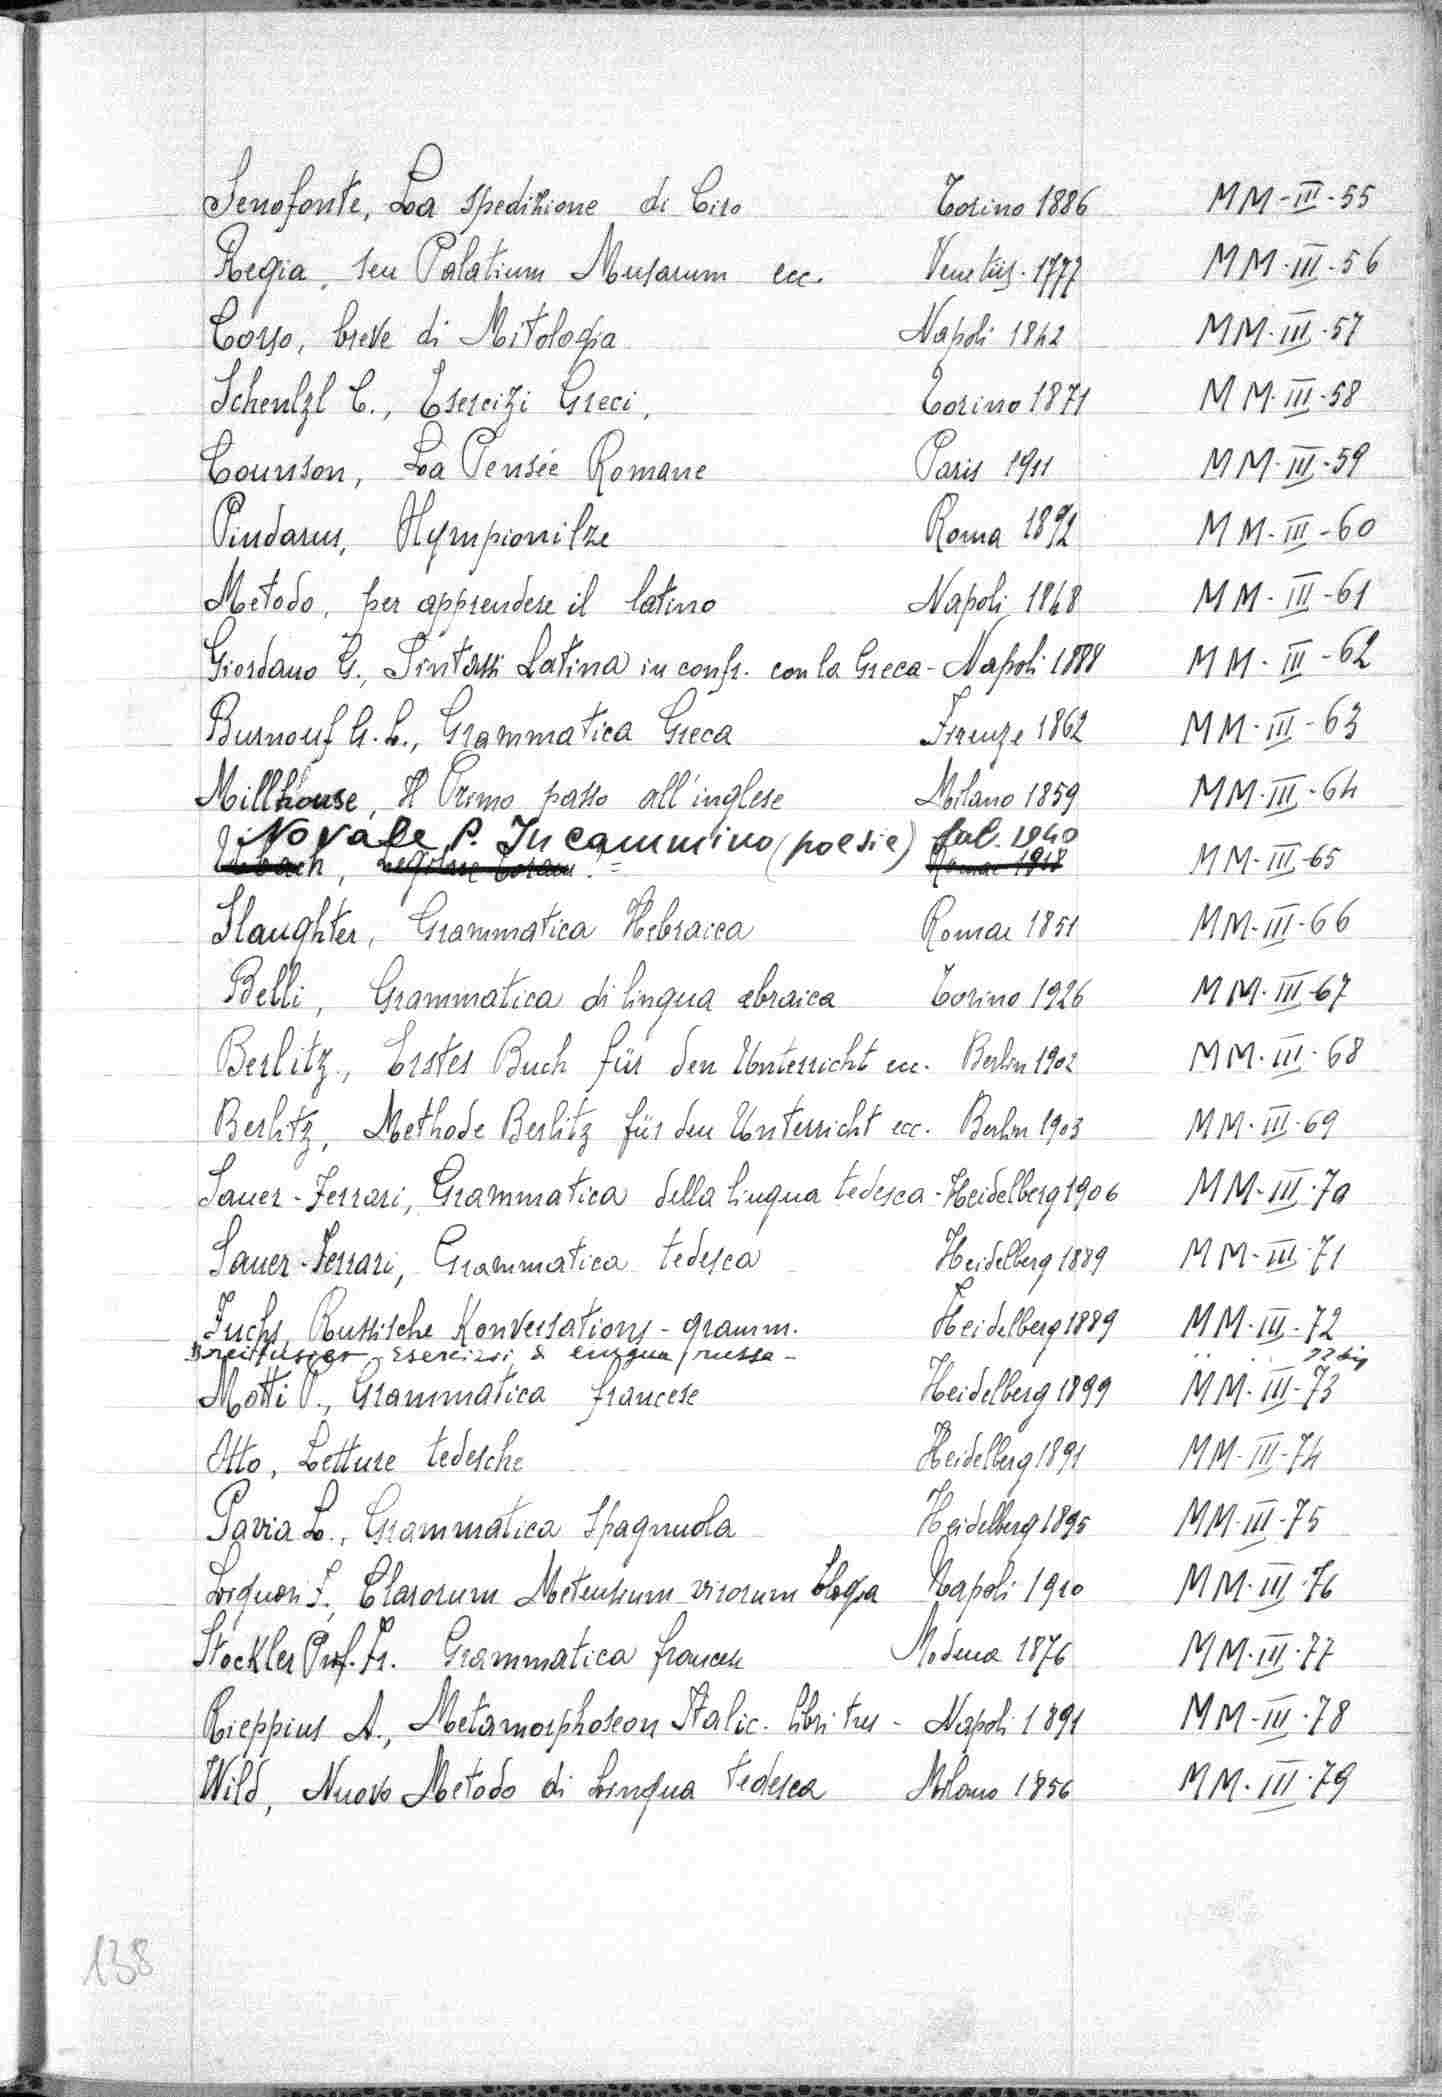 Senofonte, La spedizione di Ciro Torino 1886 MM-III-55
Regia, seu Palatium Musarum ecc. Venetiis. 1777 MM-III-56
Corso, breve di Mitologia Napoli 1842 MM-III-57
Schenlzl C., Esercizi Greci, Torino 1871 MM-III-58
Counson, La Pensée Romane Paris 1911 MM-III-59
Pindarus, Roma 1892 MM-III-60
Metodo, per apprendere il latino Napoli 1848 MM-III-61
Giordano G., Sintassi Latina in confr. con la Greca - Napoli 1888 MM-III-62
Burnouf G. L., Grammatica Greca Firenze 1862 MM-III-63
Millhouse, Il Primo passo all'inglese Milano 1859 MM-III-64
Novale P. In cammino (poesie) 1940
MM-III-65
Slaughter, Grammatica Hebraica Romae 1851 MM-III-66
Belli, Grammatica di lingua ebraica Torino 1926 MM-III-67
Berlitz., Erstes Buch für den Unterricht ecc. Berlin 1902 MM-III-68
Berlitz, Methode Berlitz für den Unterricht ecc. Berlin 1903 MM-III-69
Sauer-Ferrari, Grammatica della lingua tedesca - Heidelberg 1906 MM-III-70
Sauer-Ferrari, Grammatica tedesca Heidelberg 1889 MM-III-71
Fuchs, Russische Konversations-gramm. Heidelberg 1889 MM-III-72
Esercizii di lingua russa - " " 72 bis
Motti P., Grammatica francese Heidelberg 1899 MM-III-73
Otto, Letture tedesche Heidelberg 1891 MM-III-74
Pavia L., Grammatica Spagnuola Heidelberg 1895 MM-III-75
Clarorum virorum Napoli 1910 MM-III-76
Stockler Prof. Fr. Grammatica francese Modena 1876 MM-III-77
Rieppius A., Metamorphoseon Italic. libri tres - Napoli 1891 MM-III-78
Wild, Nuovo Metodo di Lingua tedesca Milano 1856 MM-III-79
138